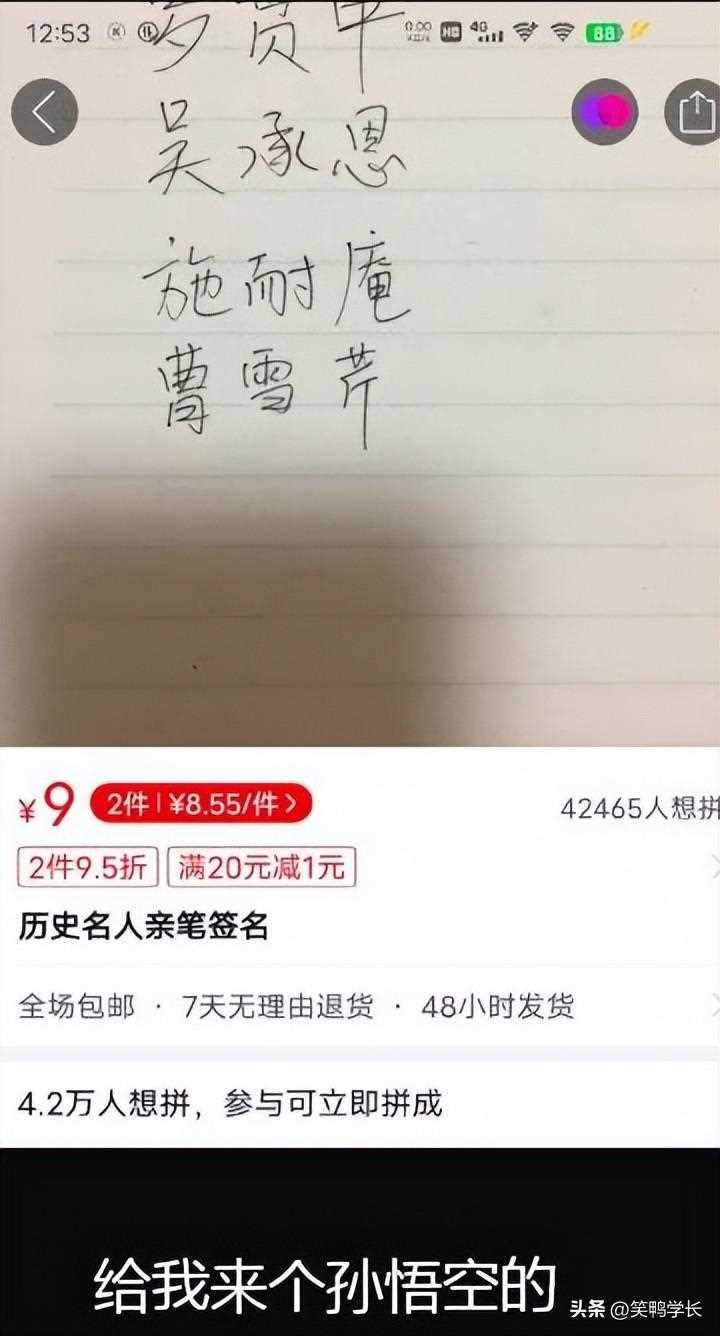 12:53
HD 4G 88
罗贯中
吴承恩
施耐庵
曹雪芹
¥9 2件 ¥8.55/件 42465人想拼
2件9.5折 满20元减1元
历史名人亲笔签名
全场包邮 · 7天无理由退货 · 48小时发货
4.2万人想拼，参与可立即拼成
给我来个孙悟空的
头条 @笑鸭学长